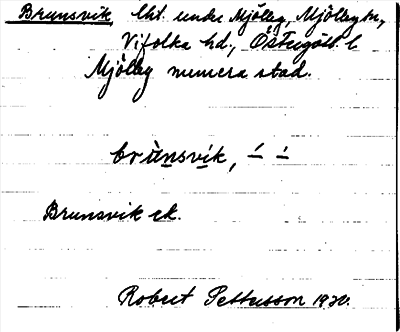 Brunsvik lht. under Mjölby, Mjölby sn,
Vifolka hd., Östergötl. l.
Mjölby numera stad.
brùnsvik, ∸ ∸
Brunsvik ek.
Robert Pettersson 1930.